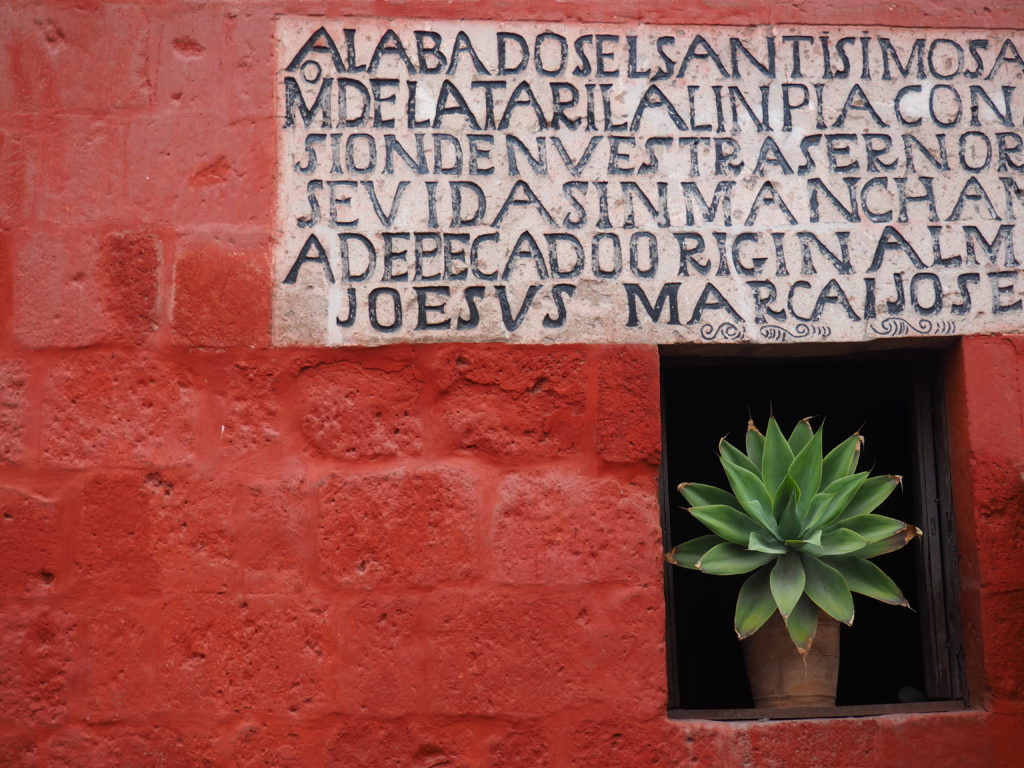 ALABADOSELSANTISIMOSA
MDELATARILALINPIACON
SIONDENVESTRASERNOR
SEVIDASINMANCHAM
ADEPECADOORIGINALM
JOESVS MARCAIJOSE